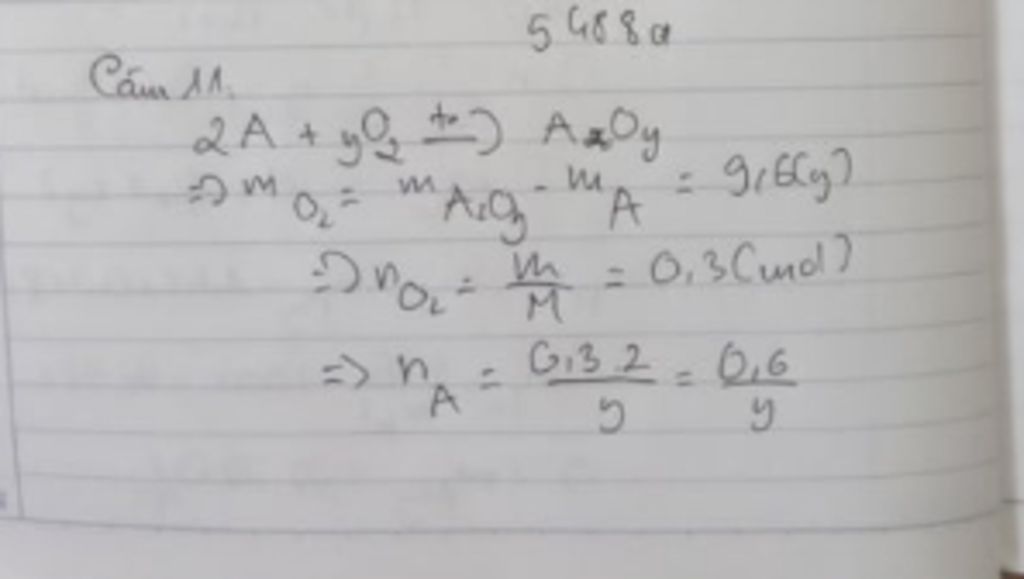 5488a
Câu 11.
2A + yO₂ →(t°) A₂Oy
=> m O₂ = m A₂Oy - m A = 9,6(g)
=> n O₂ = m/M = 0,3(mol)
=> n A = 0,3.2/y = 0,6/y